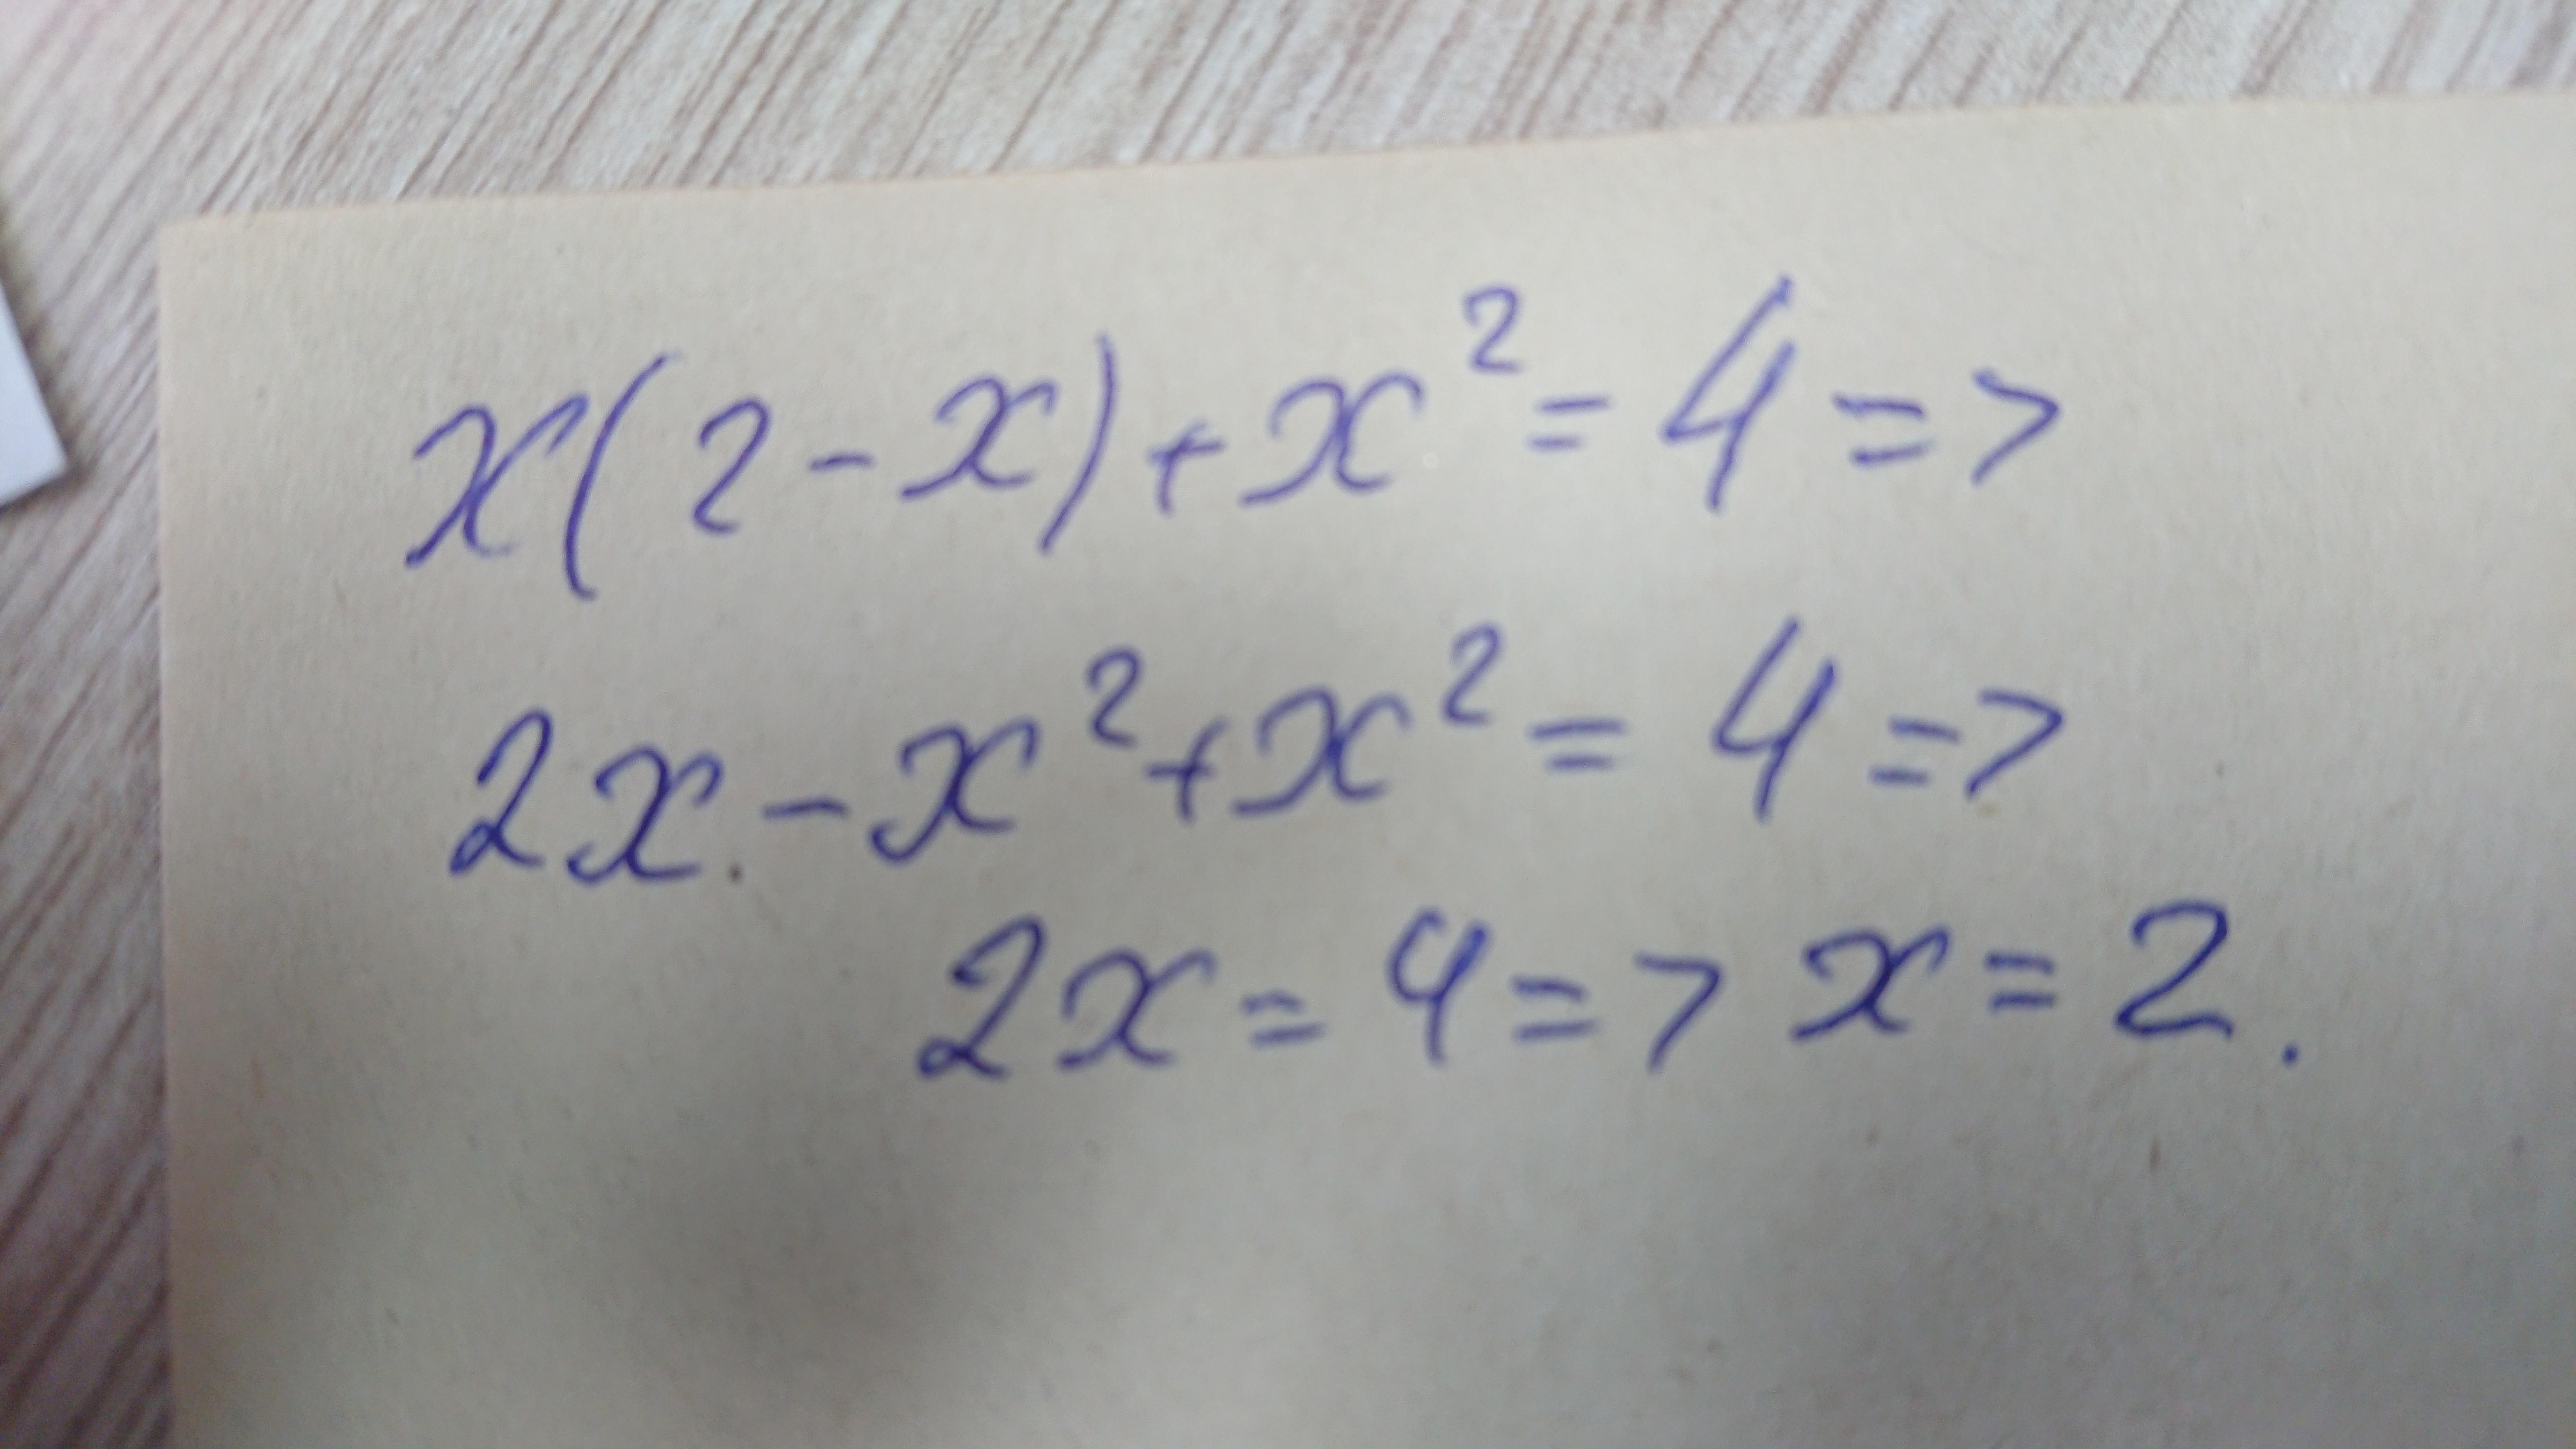 x(2-x)+x²=4=>
2x-x²+x²=4=>
2x=4=>x=2.